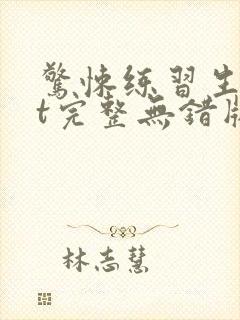 驚悚练習生
t完整無錯版
林志慧